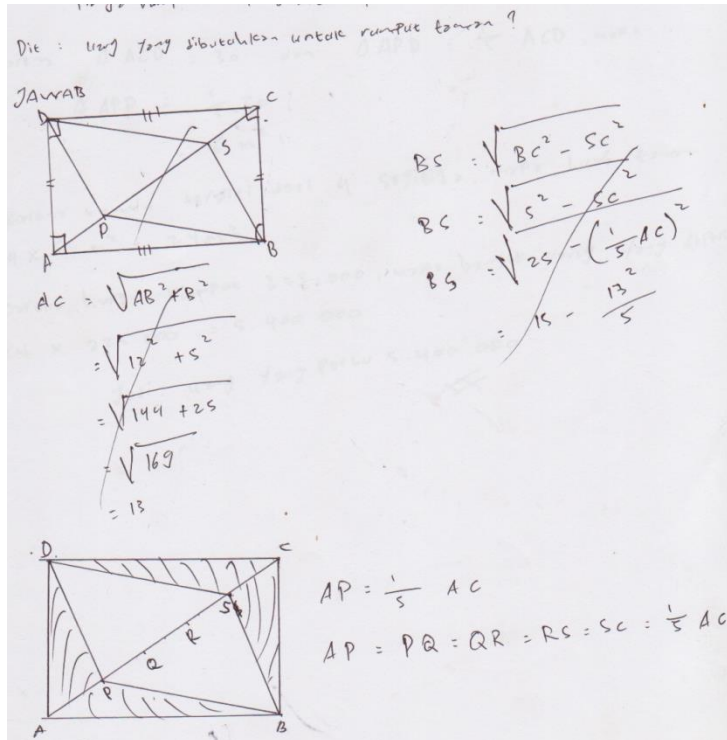 Dit : uang yang dibutuhkan untuk rumput taman ?
JAWAB
D
C
S
P
A
B
AC = √AB² + B²
= √12² + 5²
= √144 + 25
= √169
= 13
BS = √BC² - SC²
BS = √5² - SC²
BS = √25 - (1/5 AC)²
= 15 - 13²/5
D.
C
S
R
Q
P
A
B
AP = 1/5 AC
AP = PQ = QR = RS = SC = 1/5 AC